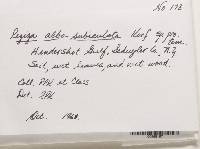 No 173
Peziza albo-subiculata Korf sp. pro.
Hendershot Gulf, Schuyler Co. N.Y.
Soil, wet leaves, and wet wood.
Coll. PPK et Class
Det. RPK
Oct. 1960.